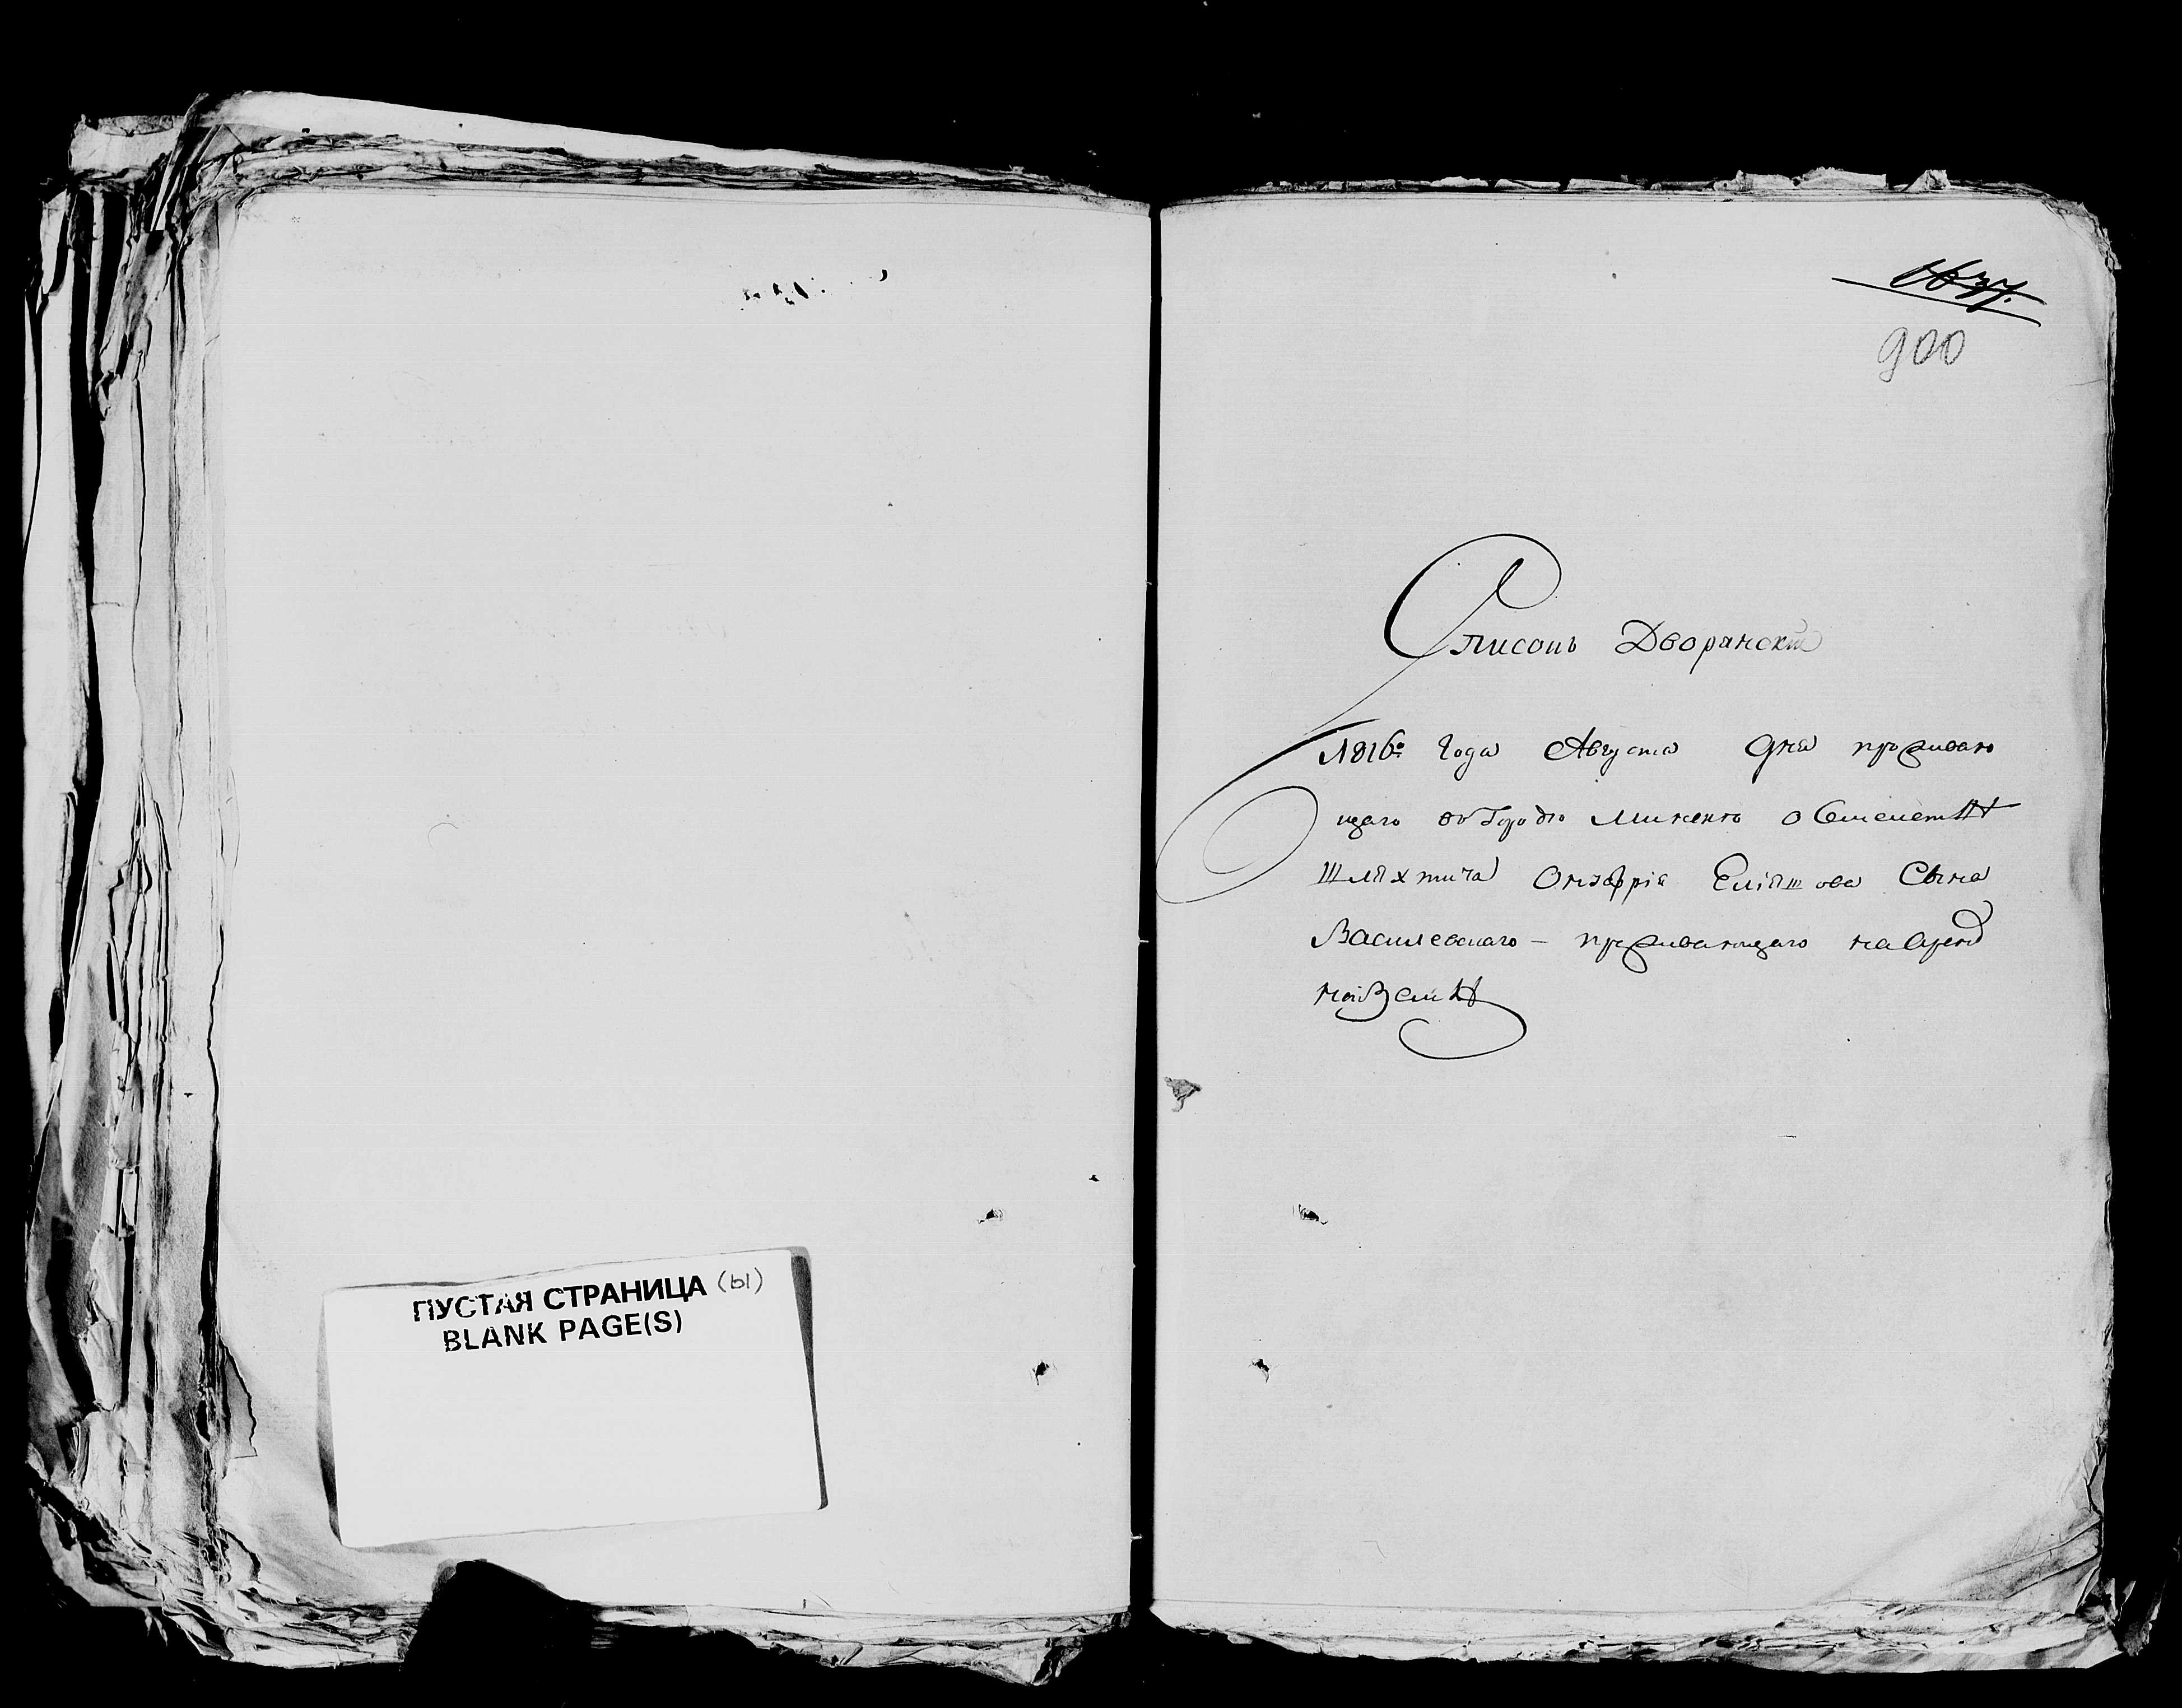 ПУСТАЯ СТРАНИЦА (ы)
BLANK PAGE(S)
900
Списокъ Дворянскій
1816го Года Августа дня проживаю
щаго въ Городѣ Минскѣ о Семействѣ
Шляхтича Онуфрія Еліяшова Сына
Василевскаго – проживающаго на Аренд
ной Землѣ